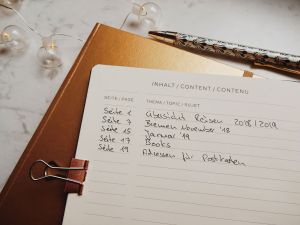 INHALT / CONTENT / CONTENU
SEITE / PAGE THEMA / TOPIC / SUJET
Seite 1 Übersicht Reisen 2018/2019
Seite 7 Bremen November '18
Seite 15 Januar '19
Seite 17 Books
Seite 19 Adressen für Postkarten